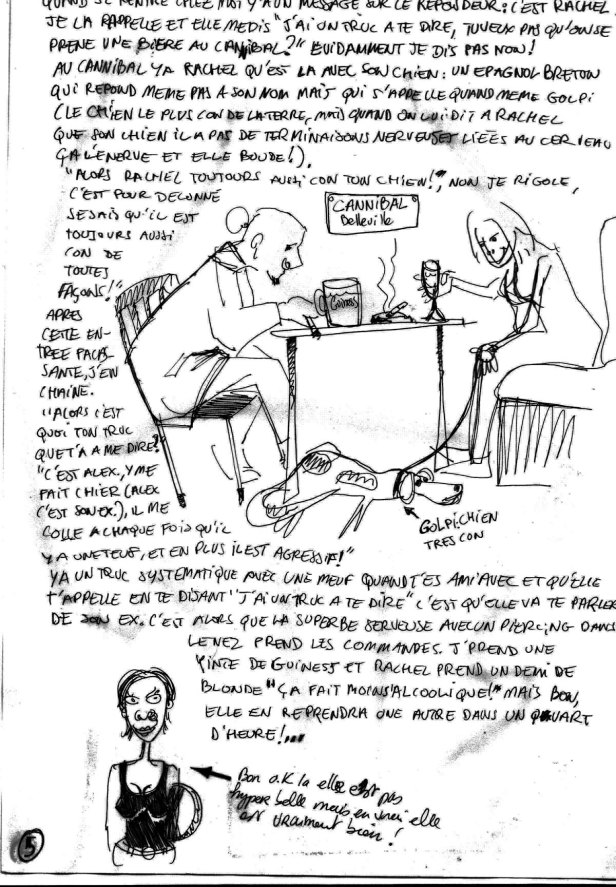 QUAND JE RENTRE CHEZ MOI Y'A UN MESSAGE SUR LE REPONDEUR: C'EST RACHEL.
JE LA RAPPELLE ET ELLE ME DIS "J'AI UN TRUC A TE DIRE, TU VEUX PAS QU'ON SE
PRENE UNE BIERE AU CANNIBAL?" EVIDAMMENT JE DIS PAS NON!
AU CANNIBAL YA RACHEL QU'EST LA AVEC SON CHIEN: UN EPAGNOL BRETON
QUI REPOND MEME PAS A SON NOM MAIS QUI S'APPELLE QUAND MEME GOLPI
(LE CHIEN LE PLUS CON DE LA TERRE, MAIS QUAND ON LUI DIT A RACHEL
QUE SON CHIEN IL A PAS DE TERMINAISONS NERVEUSES LIÉES AU CERVEAU
ÇA L'ENERVE ET ELLE BOUDE!).
"ALORS RACHEL TOUJOURS AUSSI CON TON CHIEN!", NON JE RIGOLE,
C'EST POUR DECONNÉ
SE SAIS QU'IL EST
TOUJOURS AUSSI
CON DE
TOUTES
FAÇONS!"
APRES
CETTE EN-
TREE PACAS-
SANTE, J'EN
CHAINE.
"ALORS C'EST
QUOI TON TRUC
QUE T'A A ME DIRE?"
"C'EST ALEX., Y ME
FAIT CHIER (ALEX
C'EST SON EX.), IL ME
COLLE A CHAQUE FOIS QU'IL
Y A UNE TEUF, ET EN PLUS IL EST AGRESSIF!"
CANNIBAL
Belleville
GUINESS
GOLPI: CHIEN
TRES CON
YA UN TRUC SYSTEMATIQUE AVEC UNE MEUF QUAND T'ES AMI AVEC ET QU'ELLE
T'APPELLE EN TE DISANT "J'AI UN TRUC A TE DIRE" C'EST QU'ELLE VA TE PARLER
DE SON EX. C'EST ALORS QUE LA SUPERBE SERVEUSE AVEC UN PIERCING DANS
LE NEZ PREND LES COMMANDES. J'PREND UNE
PINTE DE GUINESS ET RACHEL PREND UN DEMI DE
BLONDE "ÇA FAIT MOINS ALCOOLIQUE!" MAIS BON,
ELLE EN REPRENDRA UNE AUTRE DANS UN QUART
D'HEURE!...
Bon o.K la elle est pas
hyper belle mais en vrai elle
est vraiment bien!
5